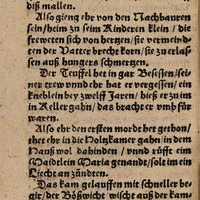 diß mallen.
Also gieng ehr von den Nachbauren
sein / heim zu sein Kinderen klein / die
frewetten sich von hertzen / sie vermeind-
en der Vatter brecht korn / sie zu erlas-
sen auß hungers schmertzen.
Der Teuffel het in gar Besessen / sei-
ner trew vnnd ehr hat er vergessen / ein
kneblein bey zwelff Jaren / hieß er zu im
in Keller gahn / das bracht er vmb für
waren.
Also ehr den ersten mordt het gethon /
thet ehr in die Holtzkamer gahn in dem
Hauß wol dahinden / vnnd rüfft eim
Maidelein Maria genandt / solt im ein
Liecht an zündten.
Das kam gelauffen mit schneller be-
gir / der Bößwicht wischt auß der kam-